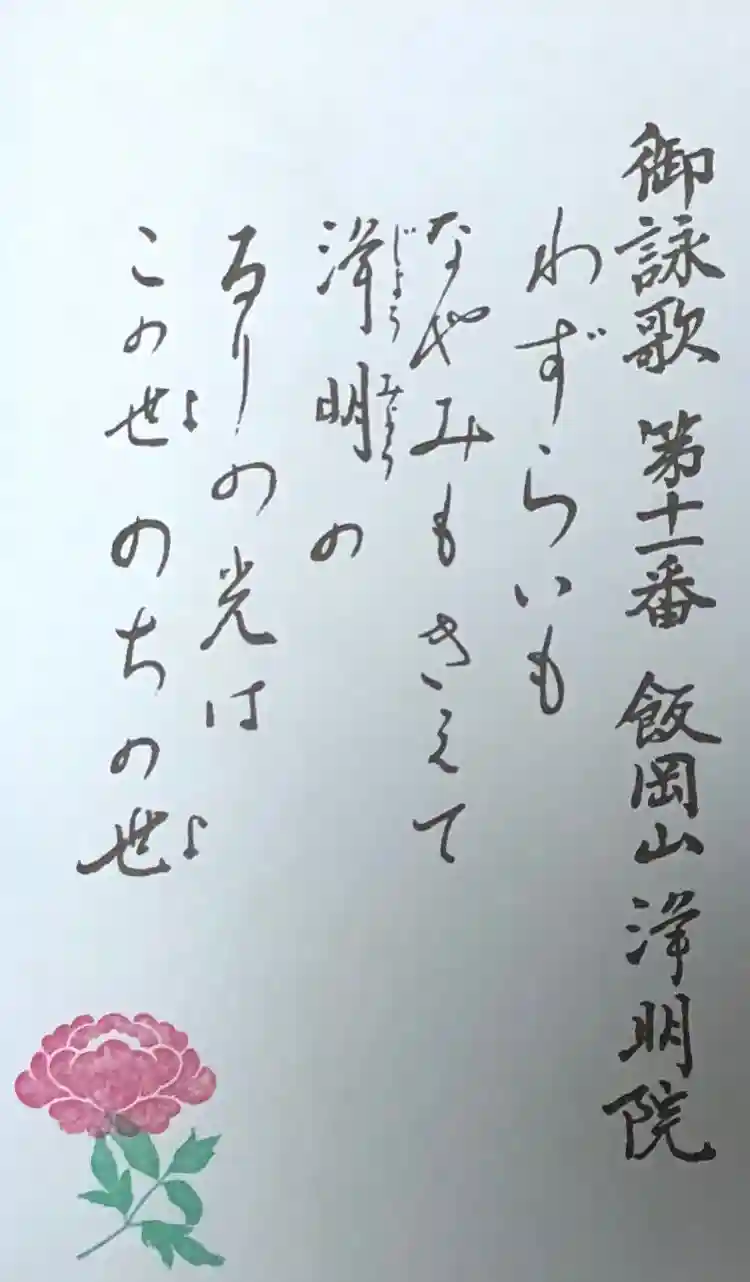 御詠歌 第十一番 飯岡山 浄明院
わずらいも
なやみもきえて
浄明の
じょうみょう
るりの光は
この世 のちの世
よ よ